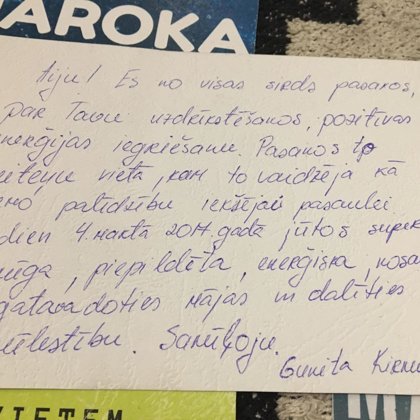 AROKA
Aiju! Es no visas sirds pasakos,
par Tavu uzdrīkstēšanos, pozitīvas
enerģijas iegriešanu. Pasakos to
vietā, kam to vajdzēja kā
palīdzību iekšējai pasaulei
dien 4. martā 2017. gadā jūtos super
piepildīta, enerģiska,
gatava doties mājas un dalīties
mīlestību. Samīļoju.
Gunita
VIETEM